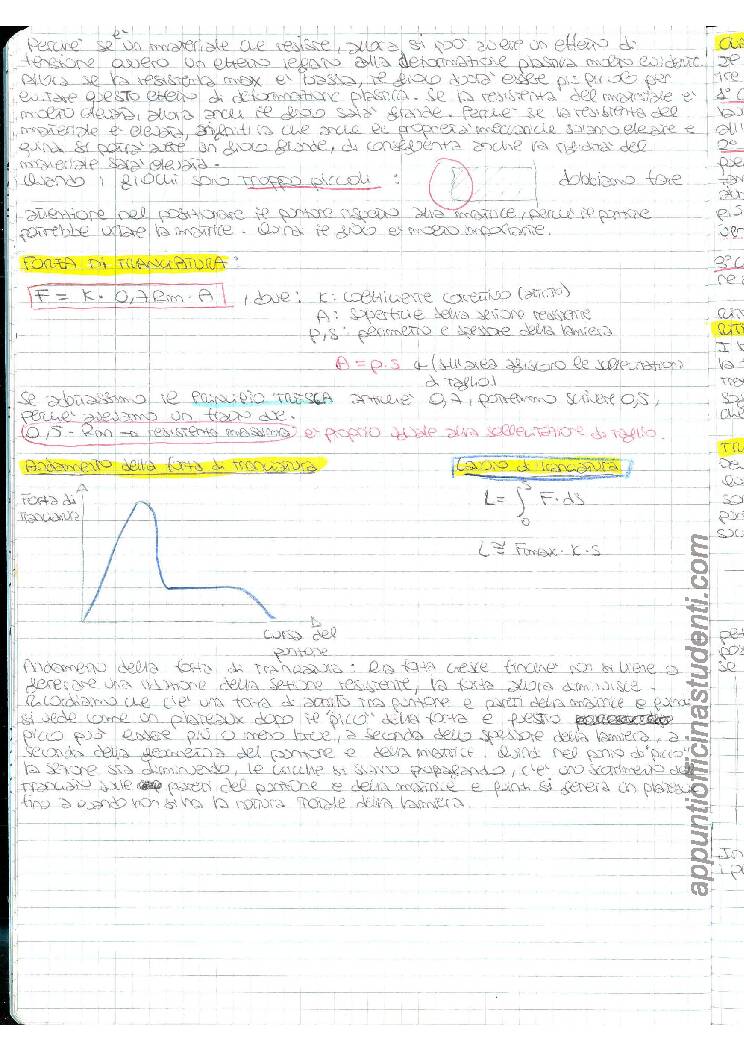 Perché se è un materiale che resiste, allora si può avere un effetto di
tensione ovvero un effetto legato alla deformazione plastica molto evidente.
Allora se la resistenza max è bassa, il gioco dovrà essere più piccolo per
evitare questo effetto di deformazione plastica. Se la resistenza del materiale è
molto elevata, allora anche il gioco sarà grande. Perché se la resistenza del
materiale è elevata, significa che anche le proprietà meccaniche saranno elevate e
quindi si potrà avere un gioco grande, di conseguenza anche la rigidità del
materiale sarà elevata.
Quando i giochi sono troppo piccoli : dobbiamo fare
attenzione nel posizionare il punzone rispetto alla matrice, perché il punzone
potrebbe urtare la matrice. Quindi il gioco è molto importante.
FORZA DI TRANCIATURA :
F = K · 0,7 Rm · A , dove : K : coefficiente correttivo (attrito)
A : superficie della sezione resistente
p, s : perimetro e spessore della lamiera
A = p·s (sull'area agiscono le sollecitazioni
di taglio)
Se adottassimo il PRINCIPIO TRESCA anziché 0,7, potremmo scrivere 0,5,
perché avevamo un fratto due.
0,5 · Rm → resistenza massima è proprio uguale alla sollecitazione di taglio.
Andamento della forza di tranciatura
Lavoro di tranciatura
Forza di
tranciatura
L = ∫₀ˢ F · ds
L ≅ Fmax · K · s
Corsa del
punzone
Andamento della forza di tranciatura : La forza cresce finché non si viene a
generare una riduzione della sezione resistente, la forza allora diminuisce.
Ricordiamo che c'è una forza di attrito tra punzone e pareti della matrice e quindi
si vede come un plateaux dopo il "picco" della forza e questo
picco può essere più o meno breve, a seconda dello spessore della lamiera, a
seconda della geometria del punzone e della matrice. Quindi nel punto di "picco"
la sezione sta diminuendo, le cricche si stanno propagando, c'è uno scorrimento del
tranciato sulle pareti del punzone e della matrice e quindi si genera un plateaux
fino a quando non si ha la rottura totale della lamiera.
appuntiofficinastudenti.com